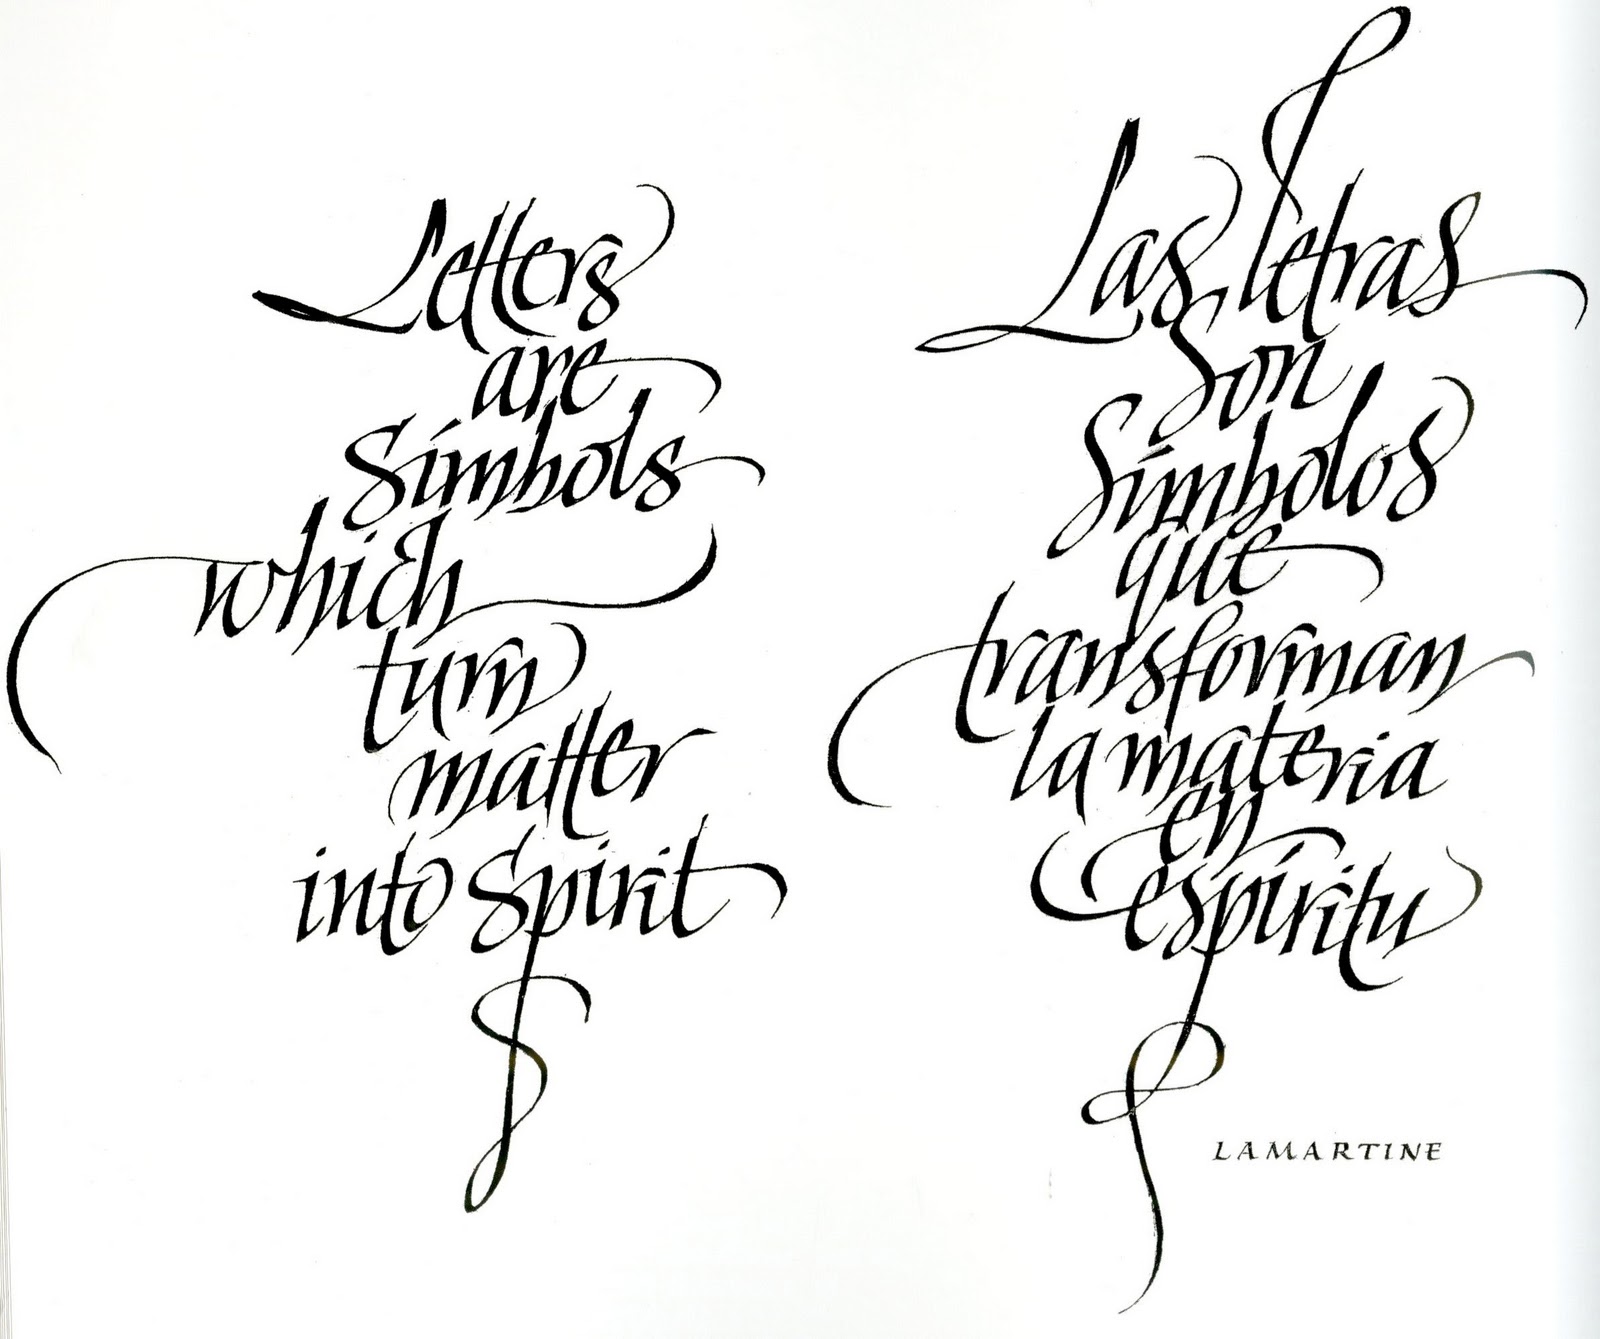 Letters
are
Símbols
which
turn
matter
into Spirit
Las letras
Son
Símbolos
que
transforman
la materia
en
espíritu
LAMARTINE